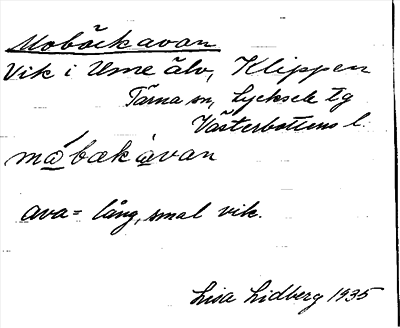 Mobäckavan
Vik i Ume älv, Klippen
Tärna sn, Lycksele tg
Västerbottens l.
måbækavan
ava = lång, smal vik.
Lisa Lidberg 1935